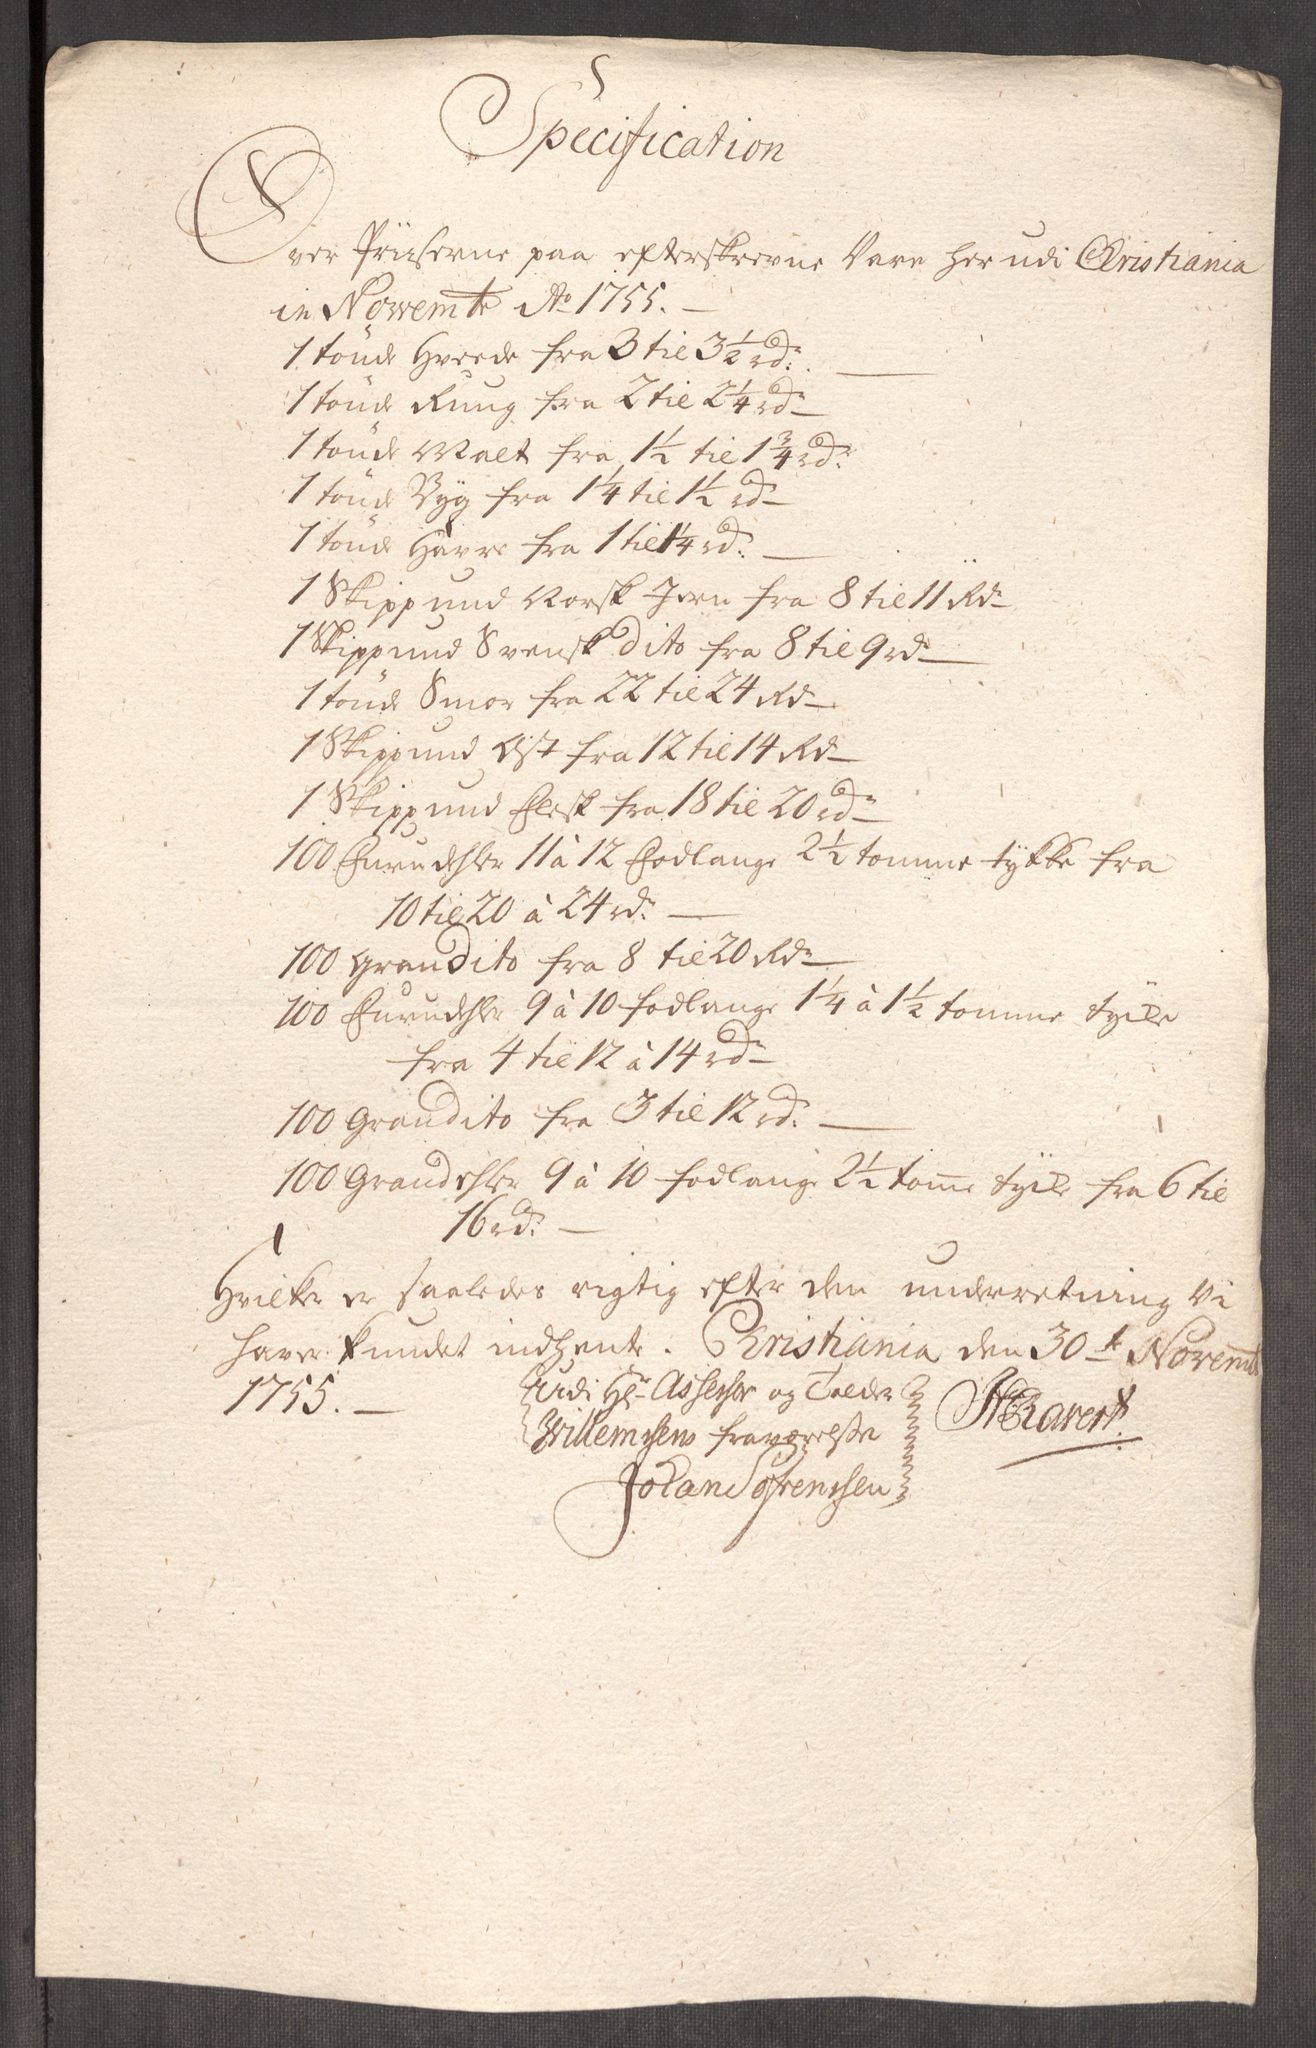 Specification
Over Priiserne paa efterskrevne Vare her udi Christiania
in Novemb: Ao 1755. —
1 tönde Hveede fra 3 til 3½ rd: —
1 tönde Rug fra 2 til 2¼ rd —
1 tönde Malt fra 1½ til 1¾ rd:
1 tönde Byg fra 1¼ til 1½ rd —
1 tönde Havre fra 1 til 1¼ rd: —
1 Skippund Norsk Jern fra 8 til 11 Rd —
1 Skippund Svensk dito fra 8 til 9 rd —
1 tönde Smør fra 22 til 24 Rd —
1 Skippund Ost fra 12 til 14 Rd —
1 Skippund Flesk fra 18 til 20 rd —
100 Furudehler 11 à 12 Fodlange 2½ tomme tykke fra
10 til 20 à 24 rd: —
100 Gran dito fra 8 til 20 Rd —
100 Furudehler 9 à 10 fodlange 1¼ à 1½ tomme tycke
fra 4 til 12 à 14 rd —
100 Gran dito fra 3 til 12 rd: —
100 Grandehler 9 à 10 fodlange 2½ tomme tycke fra 6 til
16 rd: —
Hvilket er saaledes rigtig efter den underretning vi
haver kundet indhente. Christiania den 30te Novemb
1755. — Udi Hr Assessor og Tolder
Willemsens fraværelse
Johan Sørensen